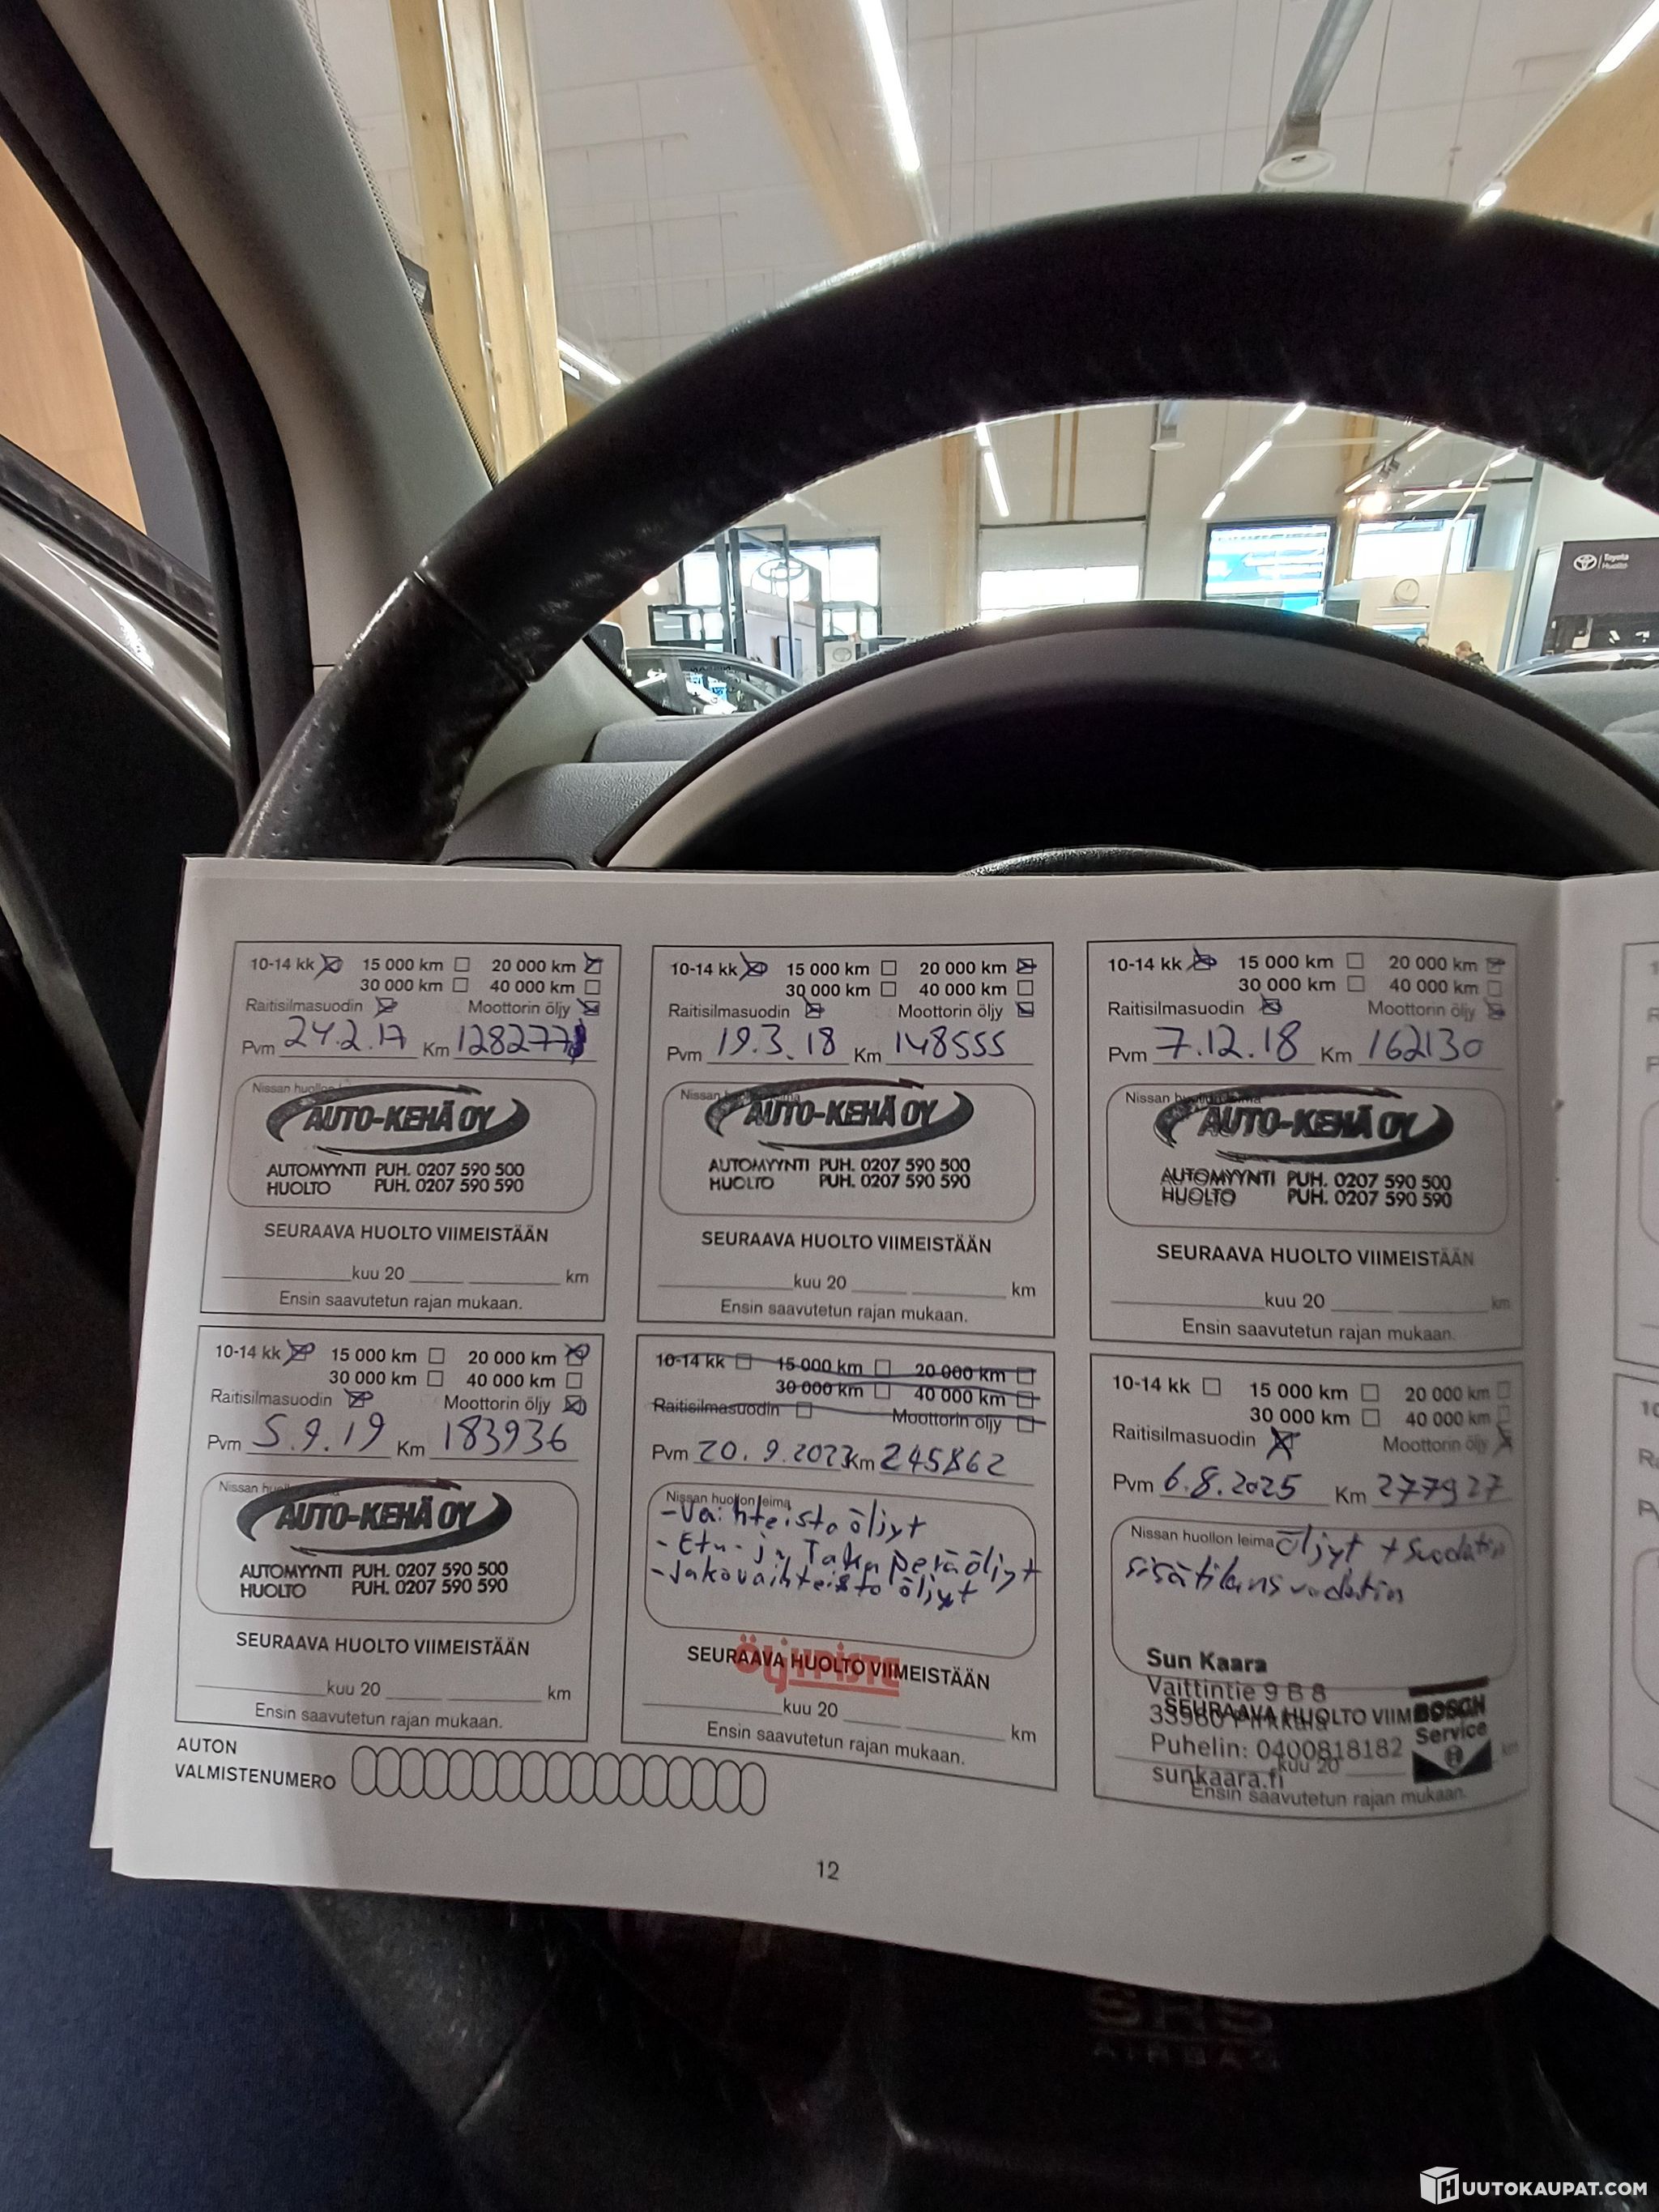 Toyota
Huolto
10-14 kk 15 000 km 20 000 km
30 000 km 40 000 km
Raitisilmasuodin Moottorin öljy
Pvm 24.2.17 Km 128277
Nissan huollon
AUTO-KEHÄ OY
AUTOMYYNTI PUH. 0207 590 500
HUOLTO PUH. 0207 590 590
SEURAAVA HUOLTO VIIMEISTÄÄN
kuu 20 km
Ensin saavutetun rajan mukaan.
10-14 kk 15 000 km 20 000 km
30 000 km 40 000 km
Raitisilmasuodin Moottorin öljy
Pvm 19.3.18 Km 148555
Nissan huollon leima
AUTO-KEHÄ OY
AUTOMYYNTI PUH. 0207 590 500
HUOLTO PUH. 0207 590 590
SEURAAVA HUOLTO VIIMEISTÄÄN
kuu 20 km
Ensin saavutetun rajan mukaan.
10-14 kk 15 000 km 20 000 km
30 000 km 40 000 km
Raitisilmasuodin Moottorin öljy
Pvm 7.12.18 Km 162130
Nissan huollon leima
AUTO-KEHÄ OY
AUTOMYYNTI PUH. 0207 590 500
HUOLTO PUH. 0207 590 590
SEURAAVA HUOLTO VIIMEISTÄÄN
kuu 20 km
Ensin saavutetun rajan mukaan.
10-14 kk 15 000 km 20 000 km
30 000 km 40 000 km
Raitisilmasuodin Moottorin öljy
Pvm 5.9.19 Km 183936
Nissan huollon leima
AUTO-KEHÄ OY
AUTOMYYNTI PUH. 0207 590 500
HUOLTO PUH. 0207 590 590
SEURAAVA HUOLTO VIIMEISTÄÄN
kuu 20 km
Ensin saavutetun rajan mukaan.
10-14 kk 15 000 km 20 000 km
30 000 km 40 000 km
Raitisilmasuodin Moottorin öljy
Pvm 20.9.2023 Km 245862
Nissan huollon leima
-Vaihteisto öljyt
- Etu- ja Taka peräöljyt
-Jakovaihteisto öljyt
Öljypiste
SEURAAVA HUOLTO VIIMEISTÄÄN
kuu 20 km
Ensin saavutetun rajan mukaan.
10-14 kk 15 000 km 20 000 km
30 000 km 40 000 km
Raitisilmasuodin Moottorin öljy
Pvm 6.8.2025 Km 277927
Nissan huollon leima Öljyt + suodatin
sisätilansuodatin
Sun Kaara
Vaittintie 9 B 8
33960 Pirkkala
SEURAAVA HUOLTO
BOSCH
Service
Puhelin: 0400818182
kuu 20 km
sunkaara.fi
Ensin saavutetun rajan mukaan.
AUTON
VALMISTENUMERO
12
SRS
AIRBAG
HUUTOKAUPAT.COM